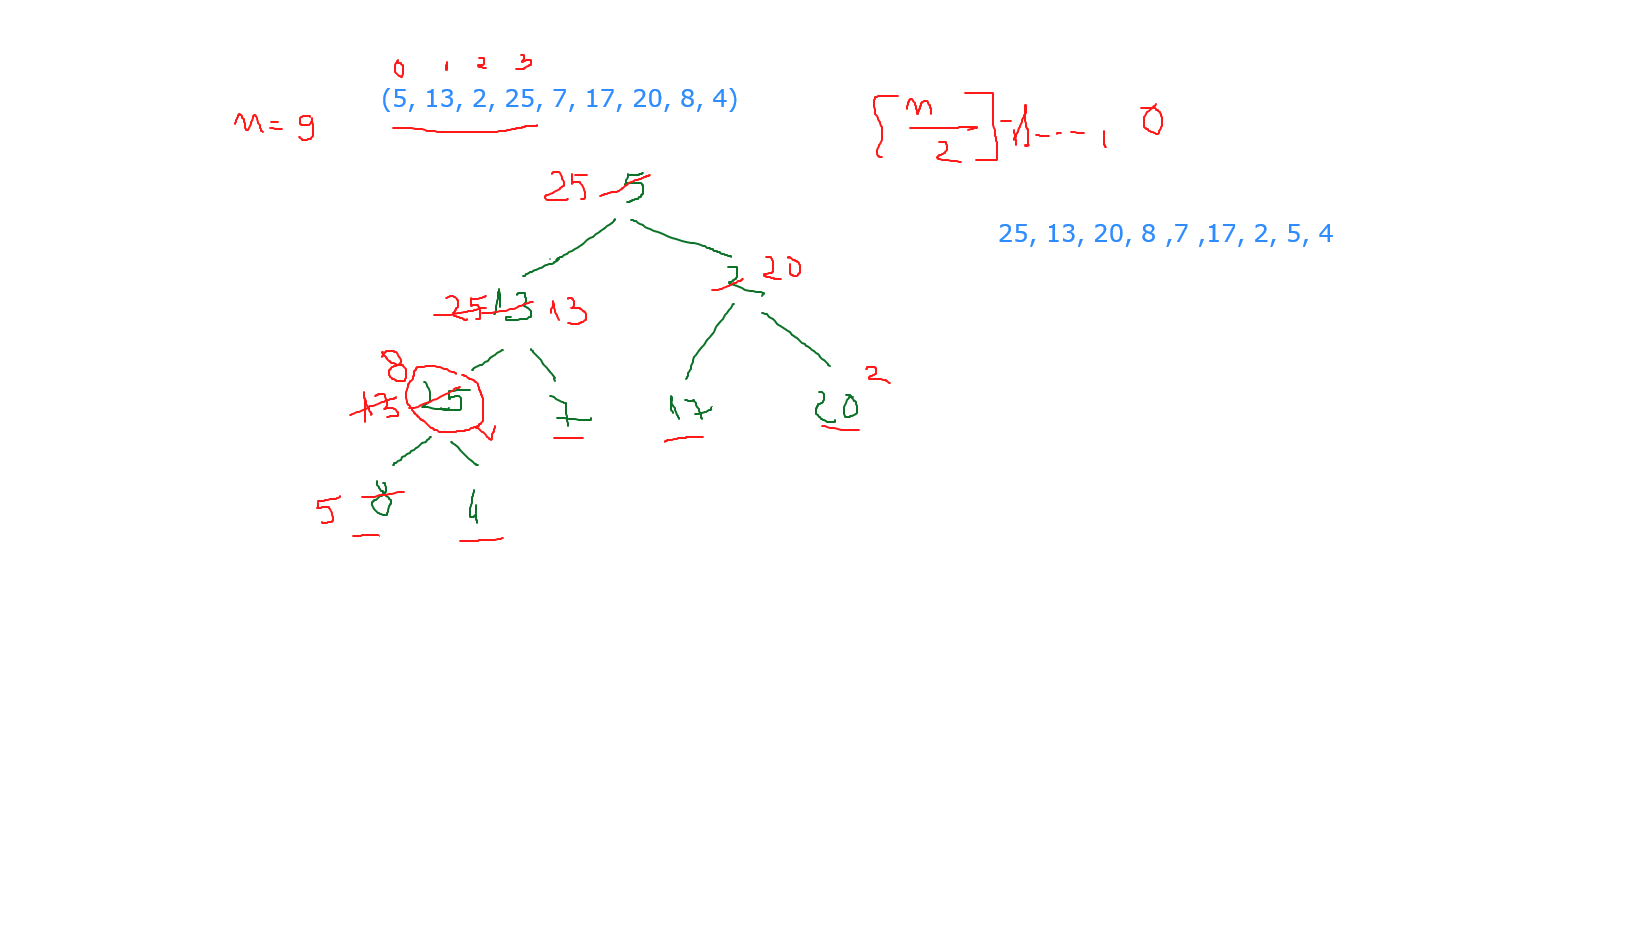 0 1 2 3
(5, 13, 2, 25, 7, 17, 20, 8, 4)
n = 9
[n/2]-1----, 0
25 5
25, 13, 20, 8 ,7 ,17, 2, 5, 4
2 20
25 13 13
8
13 25 7 17 20 2
5 8 4